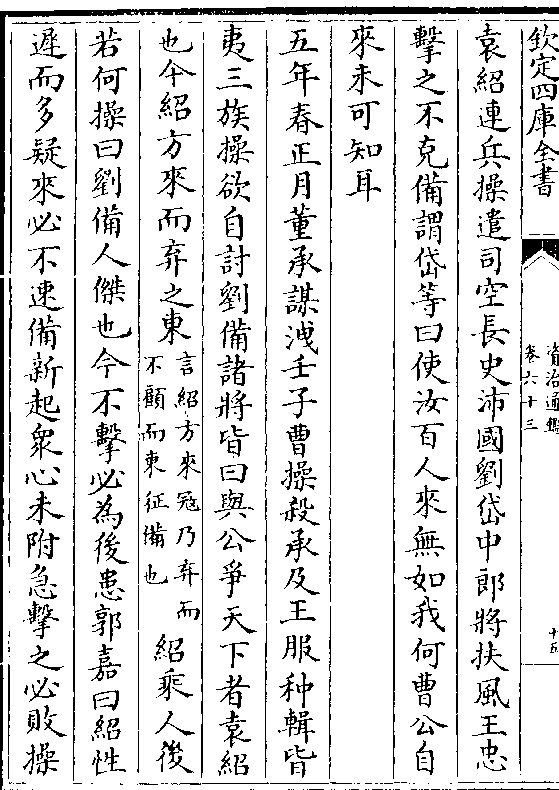 欽定四庫全書
資治通鑑
卷六十三
十五
袁紹連兵操遣司空長史沛國劉岱中郎將扶風王忠
擊之不克備謂岱等曰使汝百人來無如我何曹公自
來未可知耳
五年春正月董承謀洩壬子曹操殺承及王服种輯皆
夷三族操欲自討劉備諸將皆曰與公爭天下者袁紹
也今紹方來而弃之東言紹方來冦乃弃而不顧而東征備也紹乘人後
若何操曰劉備人傑也今不擊必為後患郭嘉曰紹性
遲而多疑來必不速備新起衆心未附急擊之必敗操